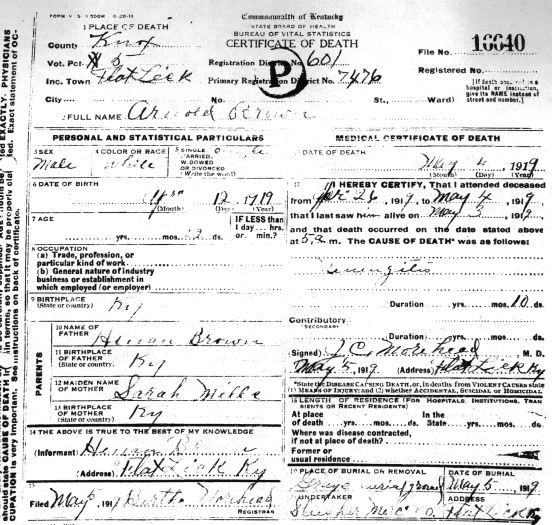 FORM V. S. 1 500M 6-20-11
Commonwealth of Kentucky
STATE BOARD OF HEALTH
BUREAU OF VITAL STATISTICS
CERTIFICATE OF DEATH
1 PLACE OF DEATH
County Knox
Vot. Pct. #5
Inc. Town Flat Lick
City No. St., Ward)
Registration District No. 601
Primary Registration District No. 7476
P
File No. 16640
Registered No.
[If death occurred in a hospital or institution, give its NAME instead of street and number.]
FULL NAME Arnold Brown
PERSONAL AND STATISTICAL PARTICULARS
3 SEX Male
4 COLOR OR RACE White
5 SINGLE MARRIED, WIDOWED OR DIVORCED (Write the word)
6 DATE OF BIRTH
12 1919
(Month) (Day) (Year)
7 AGE
yrs. mos.
IF LESS than 1 day... hrs. or min.?
8 OCCUPATION
(a) Trade, profession, or particular kind of work
(b) General nature of industry business or establishment in which employed (or employer)
9 BIRTHPLACE (State or country) Ky
PARENTS
10 NAME OF FATHER Brown
11 BIRTHPLACE OF FATHER (State or country) Ky
12 MAIDEN NAME OF MOTHER Sarah Mills
13 BIRTHPLACE OF MOTHER (State or country) Ky
14 THE ABOVE IS TRUE TO THE BEST OF MY KNOWLEDGE
(Informant)
(Address) Flat Lick Ky
15
Filed May 1919
REGISTRAR
MEDICAL CERTIFICATE OF DEATH
DATE OF DEATH
May 4 1919
(Month) (Day) (Year)
17 I HEREBY CERTIFY, That I attended deceased
from Apr 26, 1919, to May 4 1919
that I last saw him alive on May 3 1919
and that death occurred on the date stated above
at m. The CAUSE OF DEATH* was as follows:
Duration yrs. mos. 10 ds.
Contributory
SECONDARY
Duration yrs. mos. ds.
Signed J C Morehead M. D.
May 5 1919 (Address) Flat Lick Ky
*State the DISEASE CAUSING DEATH, or in deaths from VIOLENT CAUSES state (1) MEANS OF INJURY; and (2) whether ACCIDENTAL, SUICIDAL or HOMICIDAL
18 LENGTH OF RESIDENCE (FOR HOSPITALS, INSTITUTIONS, TRANSIENTS OR RECENT RESIDENTS)
At place of death yrs. mos. ds.
In the State yrs. mos. ds.
Where was disease contracted, if not at place of death?
Former or usual residence
19 PLACE OF BURIAL OR REMOVAL
DATE OF BURIAL
May 5 1919
UNDERTAKER
ADDRESS
Flat Lick Ky